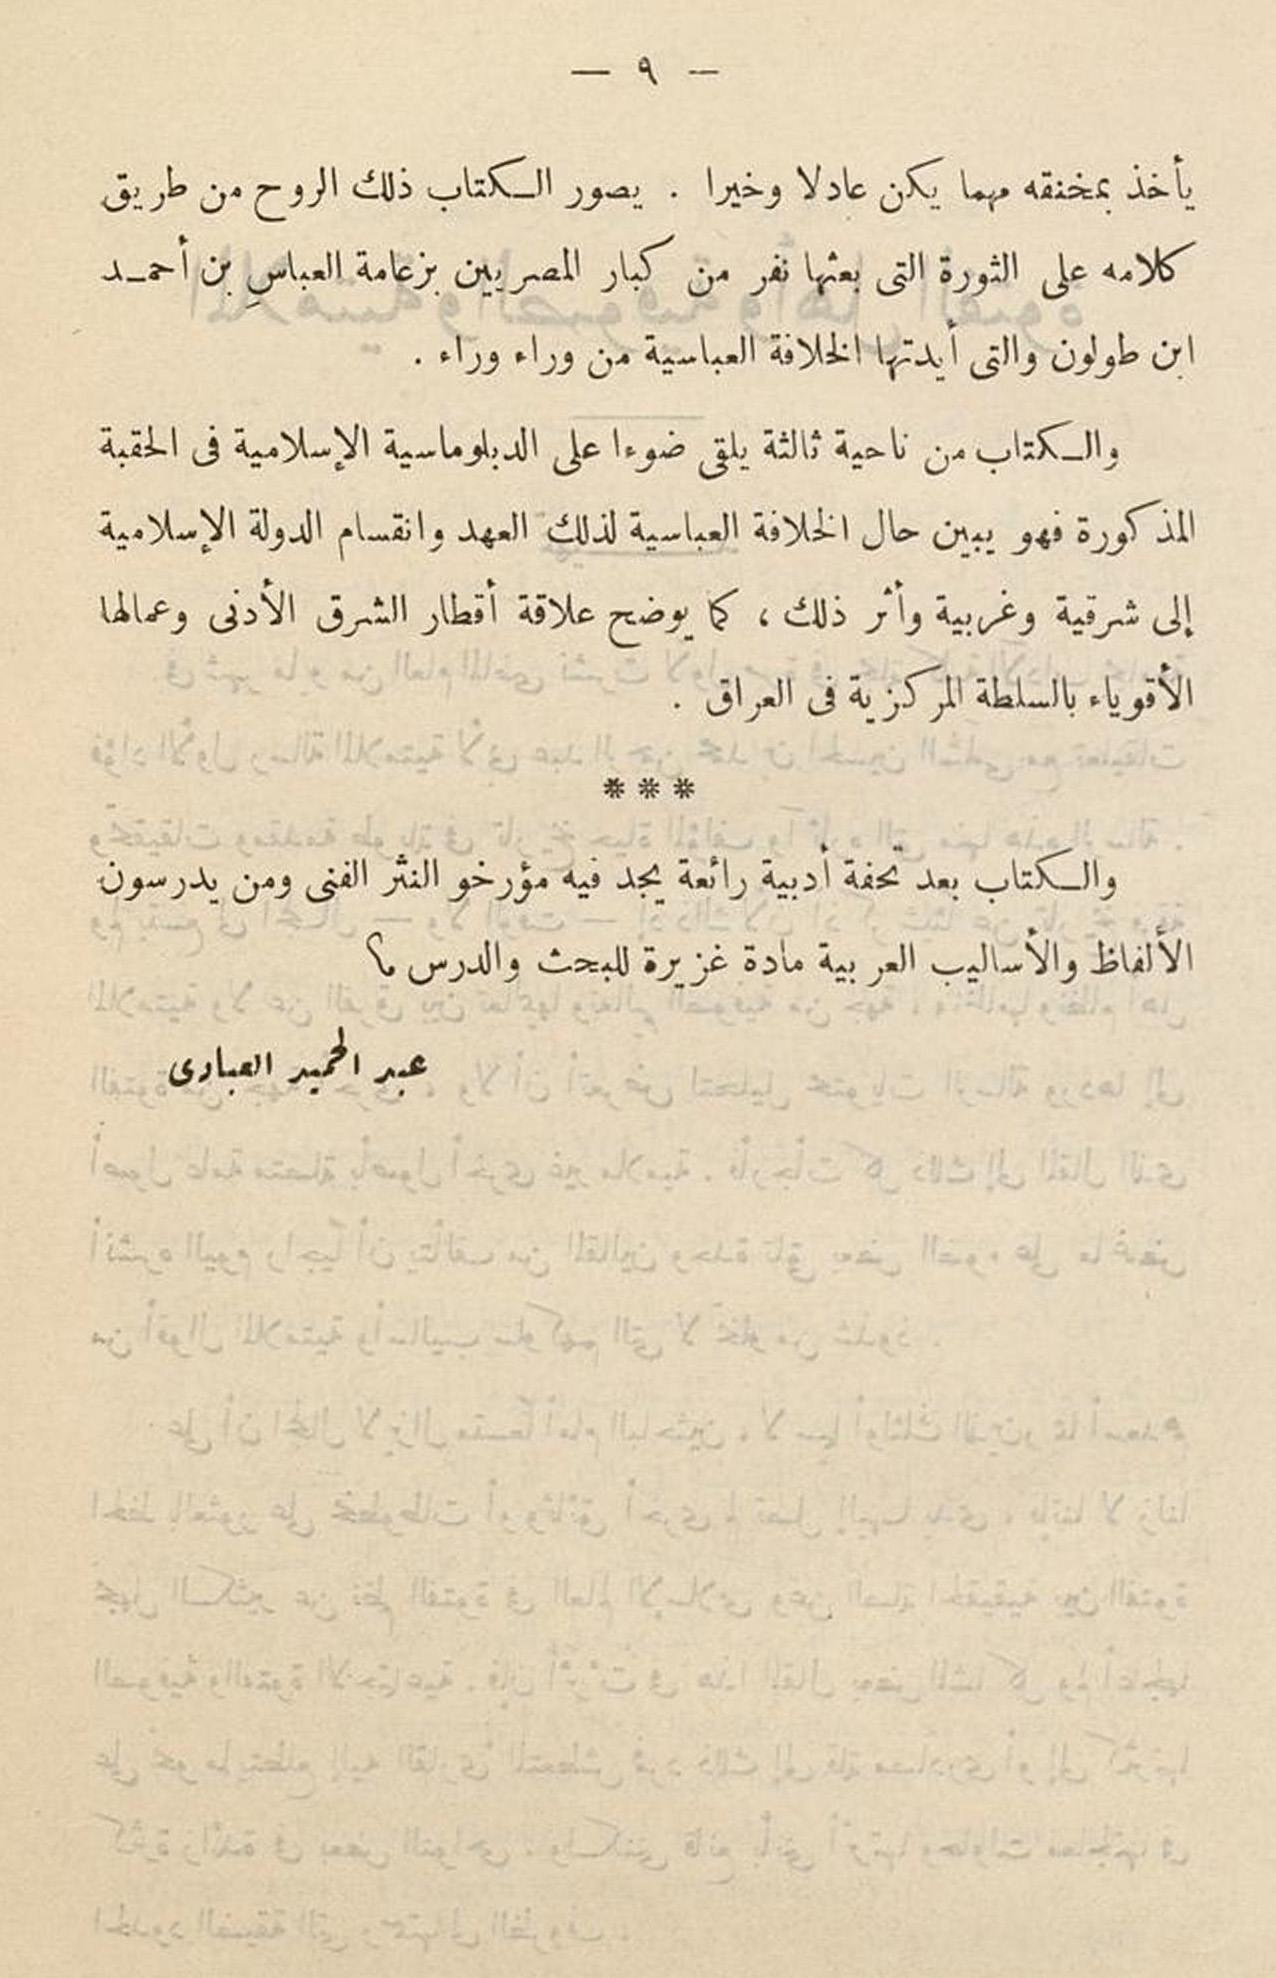 — ٩ —
يأخذ بمخنقه مهما يكن عادلا وخيرا . يصور الكتاب ذلك الروح من طريق
كلامه على الثورة التى بعثها نفر من كبار المصريين بزعامة العباسِ بن أحمد
ابن طولون والتى أيدتها الخلافة العباسية من وراء وراء .
والكتاب من ناحية ثالثة يلقى ضوءا على الدبلوماسية الإسلامية فى الحقبة
المذكورة فهو يبين حال الخلافة العباسية لذلك العهد وانقسام الدولة الإسلامية
إلى شرقية وغربية وأثر ذلك ، كما يوضح علاقة أقطار الشرق الأدنى وعمالها
الأقوياء بالسلطة المركزية فى العراق .
* * *
والكتاب بعد تحفة أدبية رائعة يجد فيه مؤرخو النثر الفنى ومن يدرسون
الألفاظ والأساليب العربية مادة غزيرة للبحث والدرس م؟
عبد الحميد العبادى